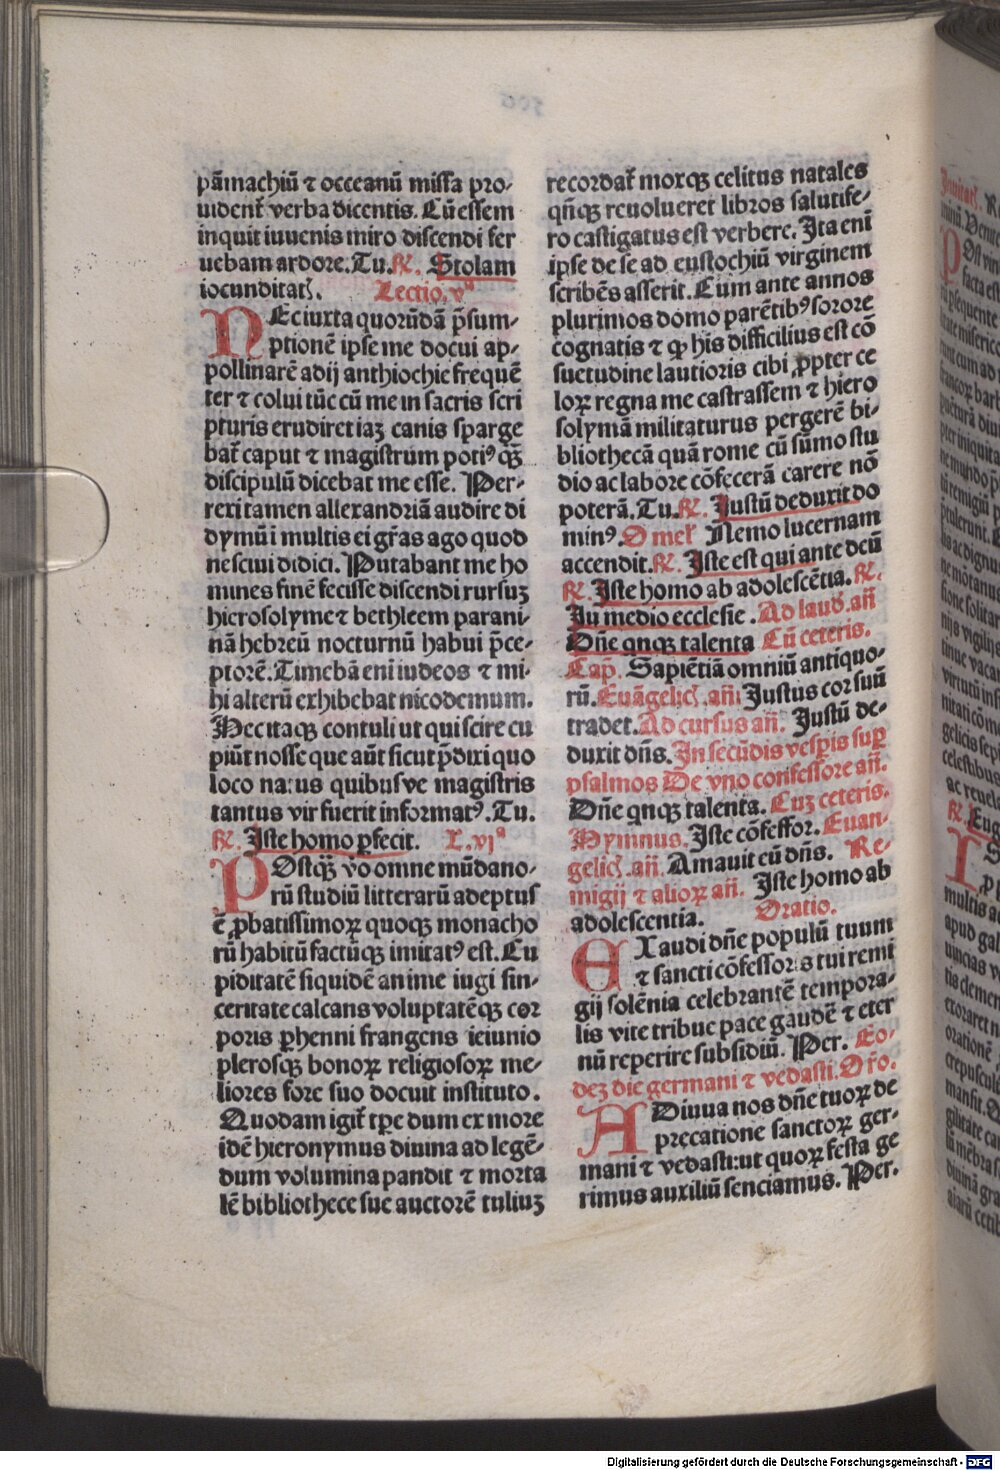 pāmachiū ⁊ occeanū missa pro-
uident̄ verba dicentis. Cū essem
inquit iuuenis miro discendi fer
uebam ardore. Tu. ℟. Stolam
iocunditatꝭ. Lectio. vᵃ
NEc iuxta quorūdā p̄sum-
ptionē ipse me docui ap-
pollinarē adij anthiochie frequē
ter ⁊ colui tūc cū me in sacris scri
pturis erudiret iaꝫ canis sparge
bat̄ caput ⁊ magistrum potiꝰ qꝫ̄
discipulū dicebat me esse. Per-
rexi tamen allexandriā audire di
dymū i multis ei gr̄as ago quod
nesciui didici. Putabant me ho
mines finē fecisse discendi rursuꝫ
hierosolyme ⁊ bethleem parani-
nā hebreū nocturnū habui p̄ce-
ptorē. Timebā eni iudeos ⁊ mi-
hi alterū exhibebat nicodemum.
Hec itaqꝫ contuli ut qui scire cu
piūt nosse que aūt sicut p̄dixi quo
loco natus quibusve magistris
tantus vir fuerit informatꝰ. Tu.
℟. Iste homo ꝑfecit. L. vjᵃ
POstqꝫ̄ vo omne mūdano-
rū studiū litterarū adeptus
ē ꝓbatissimoꝝ quoqꝫ monacho
rū habitū factūqꝫ imitatꝰ est. Cu
piditatē siquidē anime iugi sin-
ceritate calcans voluptatēqꝫ cor
poris ꝑhenni frangens ieiunio
plerosqꝫ bonoꝝ religiosoꝝ me-
liores fore suo docuit instituto.
Quodam igit̄ tꝑe dum ex more
idē hieronymus diuina ad legē-
dum volumina pandit ⁊ morta
lē bibliothece sue auctorē tuliuꝫ
recordat̄ moxqꝫ celitus natales
qn̄qꝫ reuolueret libros salutife-
ro castigatus est verbere. Ita eni
ipse de se ad eustochiū virginem
scribēs asserit. Cum ante annos
plurimos domo parētibꝰ sorore
cognatis ⁊ ꝙ his difficilius est cō
suetudine lautioris cibi ꝓpter ce
loꝝ regna me castrassem ⁊ hiero
solymā militaturus pergerē bi-
bliothecā quā rome cū sūmo stu
dio ac labore cōfecerā carere nō
poterā. Tu. ℟. Iustū deduxit do
minꝰ. O mel̄ Nemo lucernam
accendit. ℟. Iste est qui ante deū
℟. Iste homo ab adolescētia. ℟.
In medio ecclesie. Ad laud̄. an̄
Dn̄e qnqꝫ talenta Cū ceteris.
Cap̄. Sapiētiā omniū antiquo-
rū. Euāgelicꝭ. an̄. Iustus cor suū
tradet. Ad cursus an̄. Iustū de-
duxit dn̄s. In secūdis vesꝑis suꝑ
psalmos De vno confessore an̄.
Dn̄e qnqꝫ talenta. Cuꝫ ceteris.
Hymnus. Iste cōfessor. Euan-
gelicꝭ. an̄. Amauit eū dn̄s. Re-
migij ⁊ alioꝝ an̄. Iste homo ab
adolescentia. Oratio.
EXaudi dn̄e populū tuum
⁊ sancti cōfessoris tui remi
gij solēnia celebrantē tempora-
lis vite tribue pace gaudē ⁊ eter
nū reperire subsidiū. Per. Eo-
deꝫ die germani ⁊ vedasti. Or̄o.
ADiuua nos dn̄e tuoꝝ de
precatione sanctoꝝ ger-
mani ⁊ vedasti: ut quoꝝ festa ge
rimus auxiliū senciamus. Per.
Digitalisierung gefördert durch die Deutsche Forschungsgemeinschaft - DFG